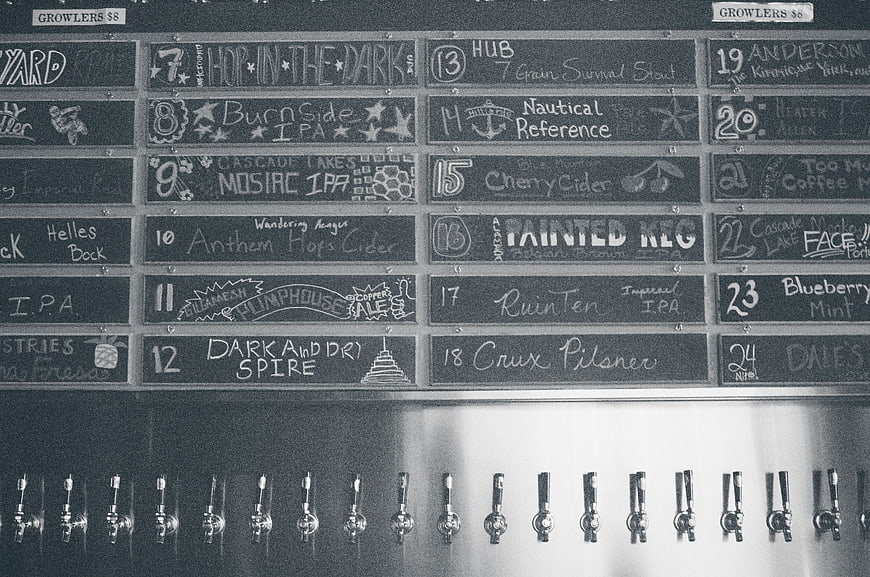 GROWLERS $8
GROWLERS $8
YARD
Imperial
Helles
Bock
I.P.A.
STRIES
Fresa
7 HOP IN THE DARK
8 BurnSide
IPA
9 CASCADE LAKES
MOSIAC IPA
10 Wandering Aengus
Anthem Hops Cider
11 GILGAMESH PUMPHOUSE COPPER
ALE
12 DARK AND DRY
SPIRE
13 HUB
7 Grain Survival Stout
14 Nautical
Reference
15 Cherry Cider
16 PAINTED KEG
17 RuinTen Imperial
IPA
18 Crux Pilsner
19 ANDERSON
20 HEATER
ALLEN
21 Too Mu
Coffee M
22 Cascade
Lake FACE
23 Blueberry
Mint
24
Nitro! DALE'S